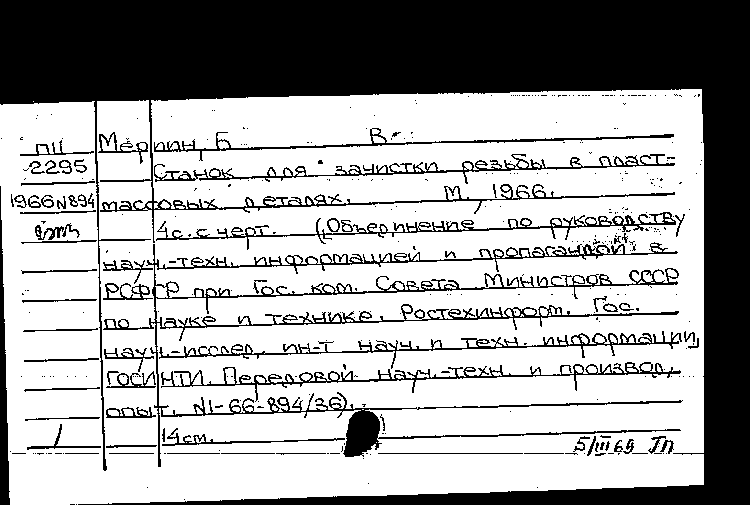 П11 Мерпин, Б В.
2295 Станок для зачистки резьбы в пласт-
1966 N894 массовых деталях. М., 1966.
4с. с черт. (Объединение по руководству
науч.-техн. информацией и пропагандой в
РСФСР при Гос. ком. Совета Министров СССР
по науке и технике. Ростехинформ. Гос.
науч.-исслед. ин-т науч. и техн. информации,
ГОСИНТИ. Передовой науч.-техн. и производ.
опыт. N1-66-894/36).
1 14см.
5/III 65 Гп